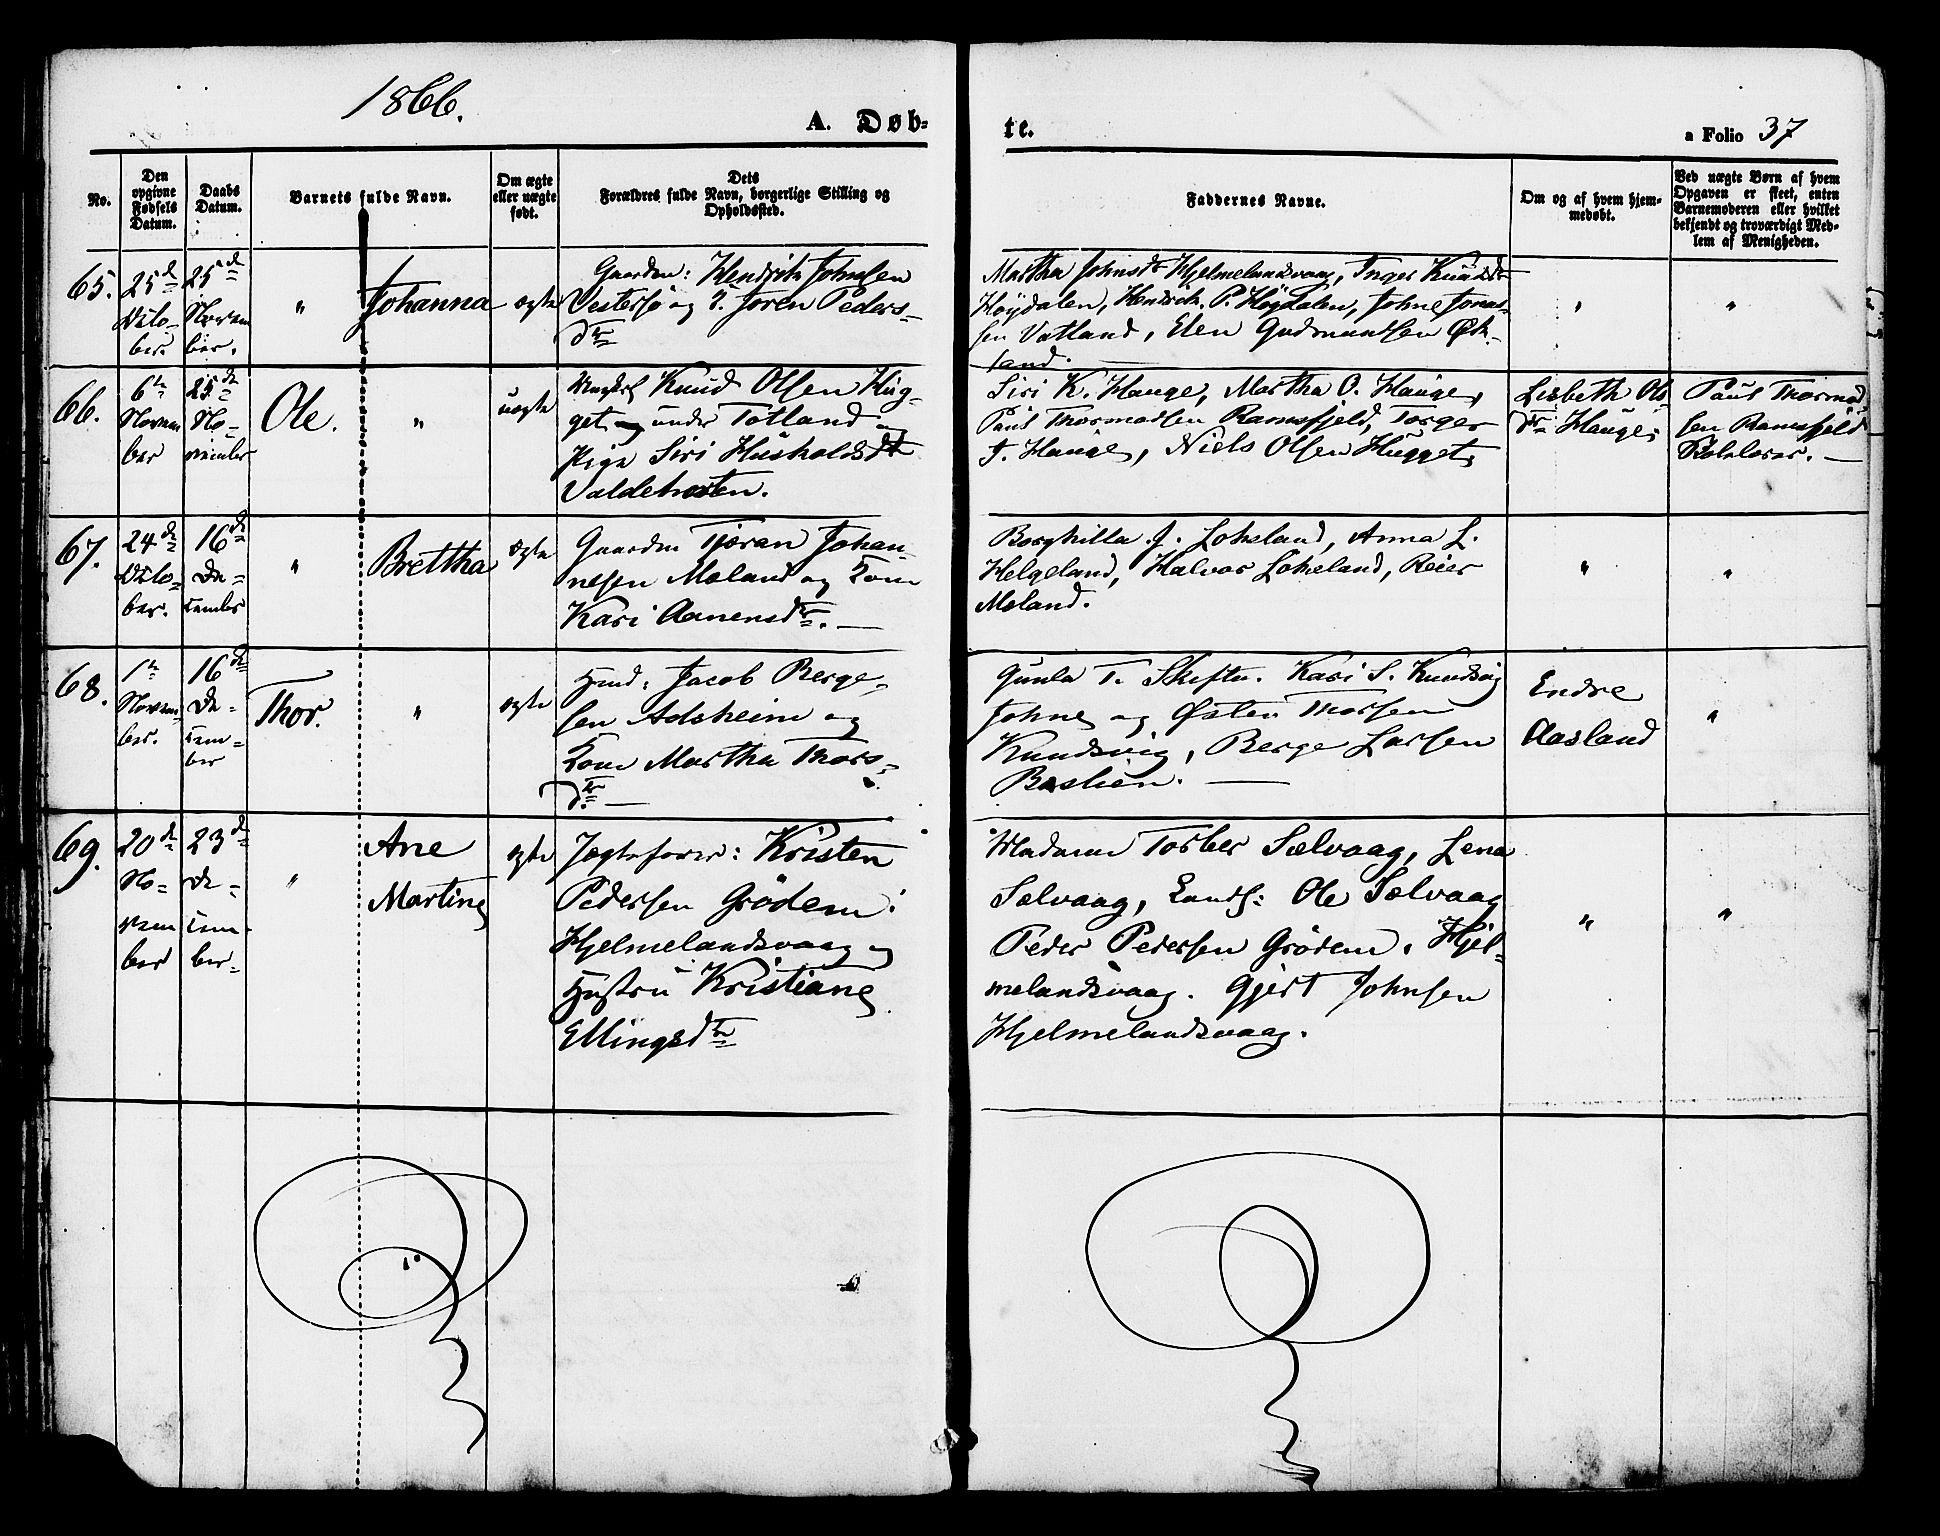 1866.
A. Døb-
te.
a Folio 37
No.
Den
opgivne
Fødsels
Datum.
Daabs
Datum.
Barnets fulde Navn.
Om ægte
eller uægte
født.
Dets
Forældres fulde Navn, borgerlige Stilling og
Opholdssted.
Faddernes Navne.
Om og af hvem hjem-
medøbt.
Ved uægte Børn af hvem
Opgaven er skeet, enten
Barnemoderen eller hvilket
bekjendt og troværdigt Med-
lem af Menigheden.
65.
25de
Octo-
ber.
25de
Novem
ber.
"
Johanna
ægte
Gaardm: Hendrik Johnsen
Vestersjø og Joren Peders-
dtr
Martha Johnsdtr Hjelmelandsvaag, Inger Knudsdtr
Høydalen, Hendrik P. Høydalen, Johne Jonas-
sen Vatland, Elen Gudmundsen Øk-
land.
"
"
66.
6te
Novem
ber
25de
No-
vember
Ole.
"
uægte
Knud Olsen Hug-
get under Totland og
Pige Siri Husholdsdtr
Valdehesten.
Siri K. Hauge, Martha O. Hauge,
Paul Thormodsen Ramsfjeld, Torger
T. Hauge, Niels Olsen Hugget
Lisbeth Ols
dtr Hauge
Paul Thormod
sen Ramsfjeld
Skolelærer.
67.
24de
Octo-
ber.
16de
De-
cember
"
Brettha
ægte
Gaardm Tjøran Johan-
nesen Moland og Kone
Kari Aanensdtr.
Borghilla J. Lokeland, Anna L.
Helgeland, Halvor Lokeland, Reier
Moland.
"
"
68.
1te
Novem-
ber.
16de
De-
cem-
ber
Thor.
"
ægte
Husmd: Jacob Berge-
sen Adsheim og
Kone Martha Thors-
dtr.
Gunla T. Skiftu. Kari S. Knudsvig
Johne og Østen Thorsen
Knudsvig, Berge Larsen
Baslien.
Endre
Aasland
"
69.
20de
No-
vem
ber
23de
De-
cem-
ber.
"
Ane
Martine
ægte
Jægtefører: Kristen
Pedersen Grödem i
Hjelmelandsvaag og
Hustru Kristiane
Ellingsdtr
Madame Torber Sælvaag, Lena
Sælvaag, Lands: Ole Sælvaag
Peder Pedersen Grödem, Hjel-
melandsvaag. Gjert Johnsen
Hjelmelandsvaag.
"
"